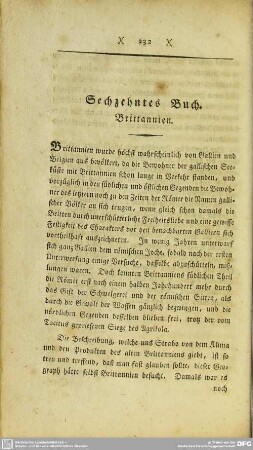 X 232 X
Sechzehntes Buch.
Brittannien.
Brittannien wurde höchst wahrscheinlich von Gallien und
Belgien aus bevölkert, da die Bewohner der gallischen See-
küste mit Brittannien schon lange in Verkehr standen, und
vorzüglich in den südlichen und östlichen Gegenden die Bewoh-
ner des letztern noch zu den Zeiten der Römer die Namen galli-
scher Völker an sich trugen, wenn gleich schon damals die
Britten durch unerschütterliche Freiheitsliebe und eine gewisse
Festigkeit des Charakters vor den benachbarten Galliern sich
vortheilhaft auszeichneten. In wenig Jahren unterwarf
sich ganz Gallien dem römischen Joche, sobald nach der ersten
Unterwerfung einige Versuche, dasselbe abzuschütteln, miß-
lungen waren. Doch konnten Brittanniens südlichen Theil
die Römer erst nach einem halben Jahrhundert mehr durch
das Gift der Schwelgerei und der römischen Sitten, als
durch die Gewalt der Waffen gänzlich bezwingen, und die
nördlichen Gegenden desselben blieben frei, trotz der vom
Tacitus gepriesenen Siege des Agrikola.
Die Beschreibung, welche uns Strabo von dem Klima
und den Produkten des alten Brittanniens giebt, ist so
treu und treffend, daß man fast glauben sollte, dieser Geo-
graph hätte selbst Brittannien besucht. Damals war es
noch